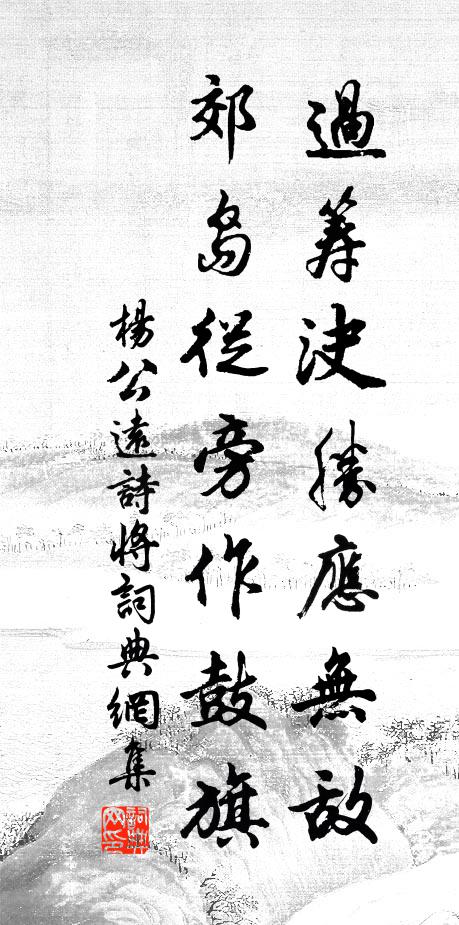 過筭決勝應無敵
郊島從旁作鼓旗
楊公遠詩將詞典網集